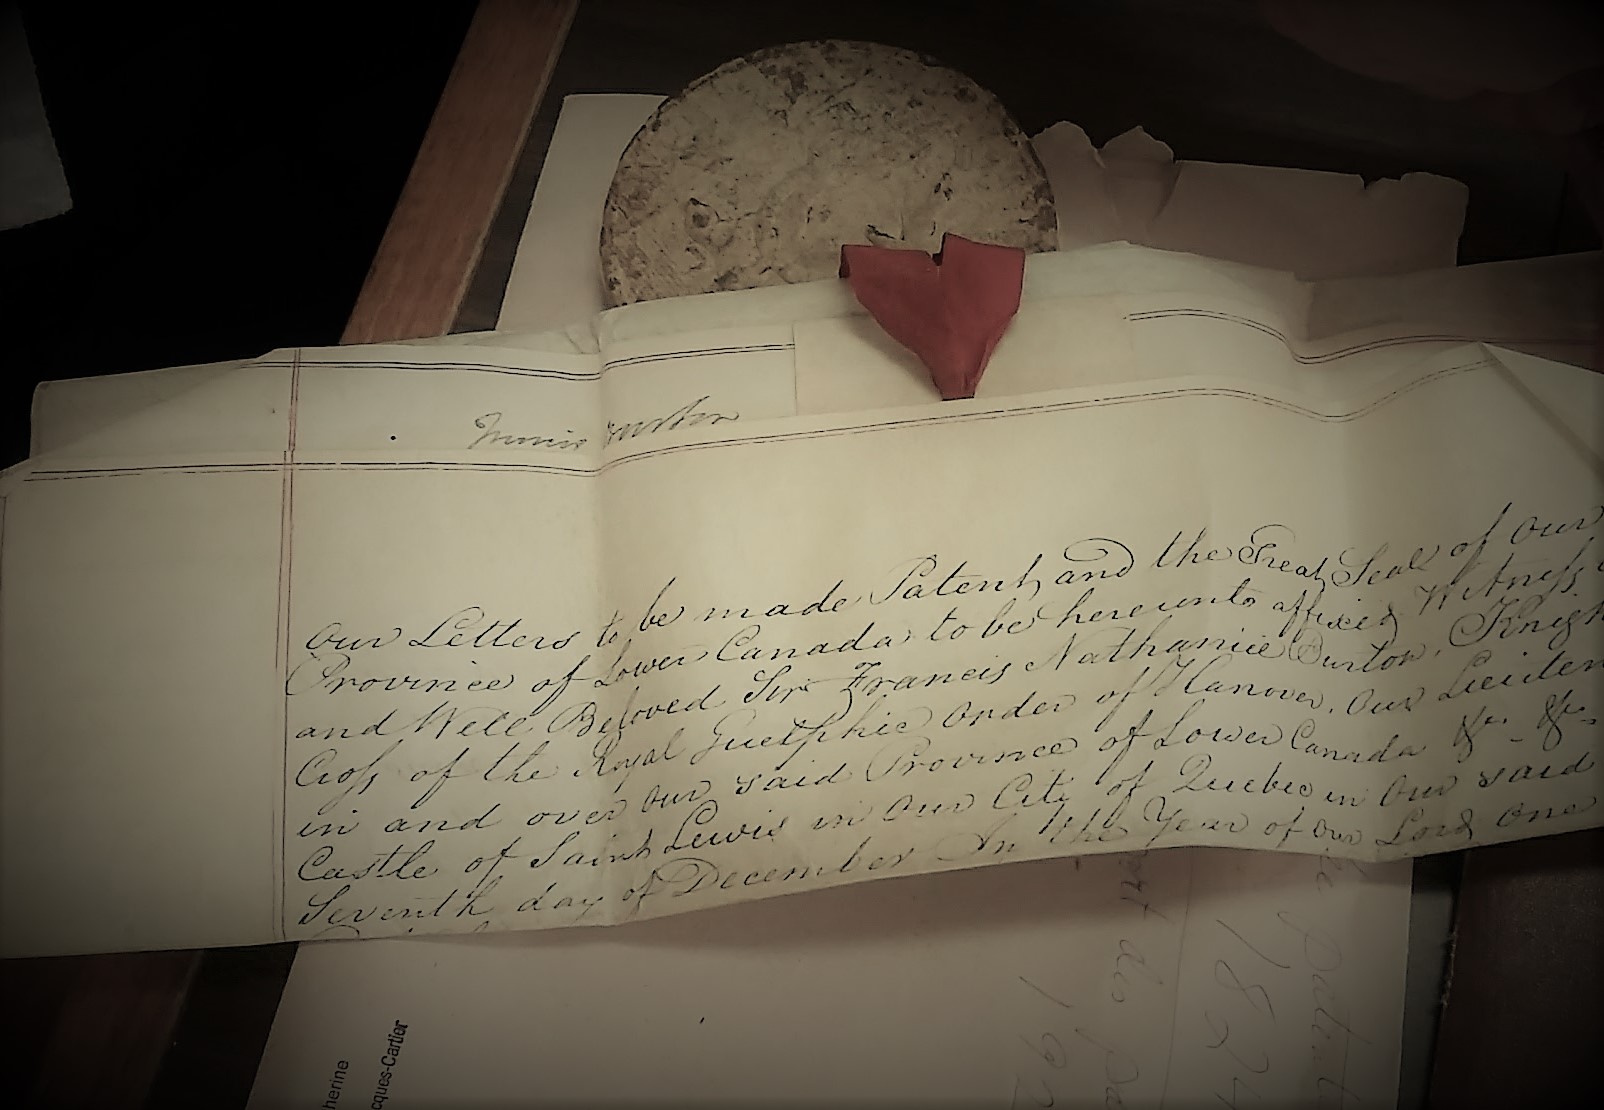 our Letters to be made Patent, and the Great Seal of our
Province of Lower Canada to be hereunto affixed Witness
and Well Beloved Sir Francis Nathaniel Burton, Knigh
Cross of the Royal Guelphic order of Hanover, our Lieuten
in and over our said Province of Lower Canada &c. &c.
Castle of Saint Lewis in our City of Quebec in our said
Seventh day of December In the Year of our Lord one
1824
herine
cques-Cartier